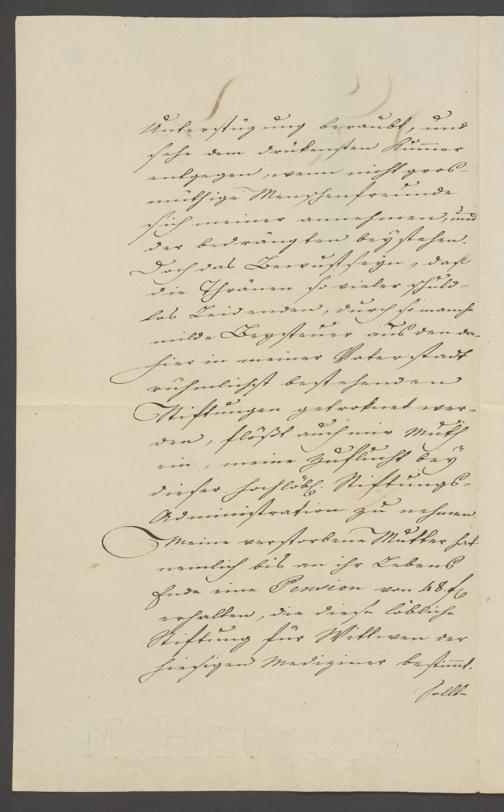 Unterstüzung beraubt, und
sehe dem drükensten Kummer
entgegen, wenn nicht gros-
müthige Menschenfreunde
sich meiner annehmen, und
der bedrängten beystehen.
Doch das Bewustseyn, daß
die Thränen so vieler schuld-
los Leidenden, durch so manche
milde Beysteuer aus den da-
hier in meiner Vaterstadt
rühmlichst bestehenden
Stiftungen getroknet wer-
den, flößt auch mir Muth
ein, meine Zuflucht bey
dieser hochlöbl. Stiftungs-
Administration zu nehmen.
Meine verstorbene Mutter hat
nemlich bis an ihr Lebens
Ende eine Pension von 48 f
erhalten, die diese löbliche
Stiftung für Wittwen der
hiesigen Mediziner bestimt.
sollte